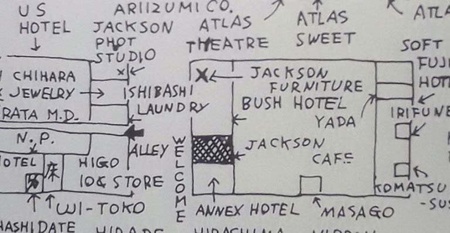 US
HOTEL
ARIIZUMI CO.
JACKSON
PHOT
STUDIO
ATLAS
THEATRE
ATLAS
SWEET
ATLA
SOFT
CHIHARA
JEWELRY
RATA M.D.
ISHIBASHI
LAUNDRY
JACKSON
FURNITURE
BUSH HOTEL
YADA
FUJ
HOT
IRIFUNE
N.P.
ALLEY
HOTEL
床
HIGO
10¢ STORE
WELCOME
JACKSON
CAFE
WI-TOKO
ANNEX HOTEL
MASAGO
KOMATSU
-SUS
HASHIDATE